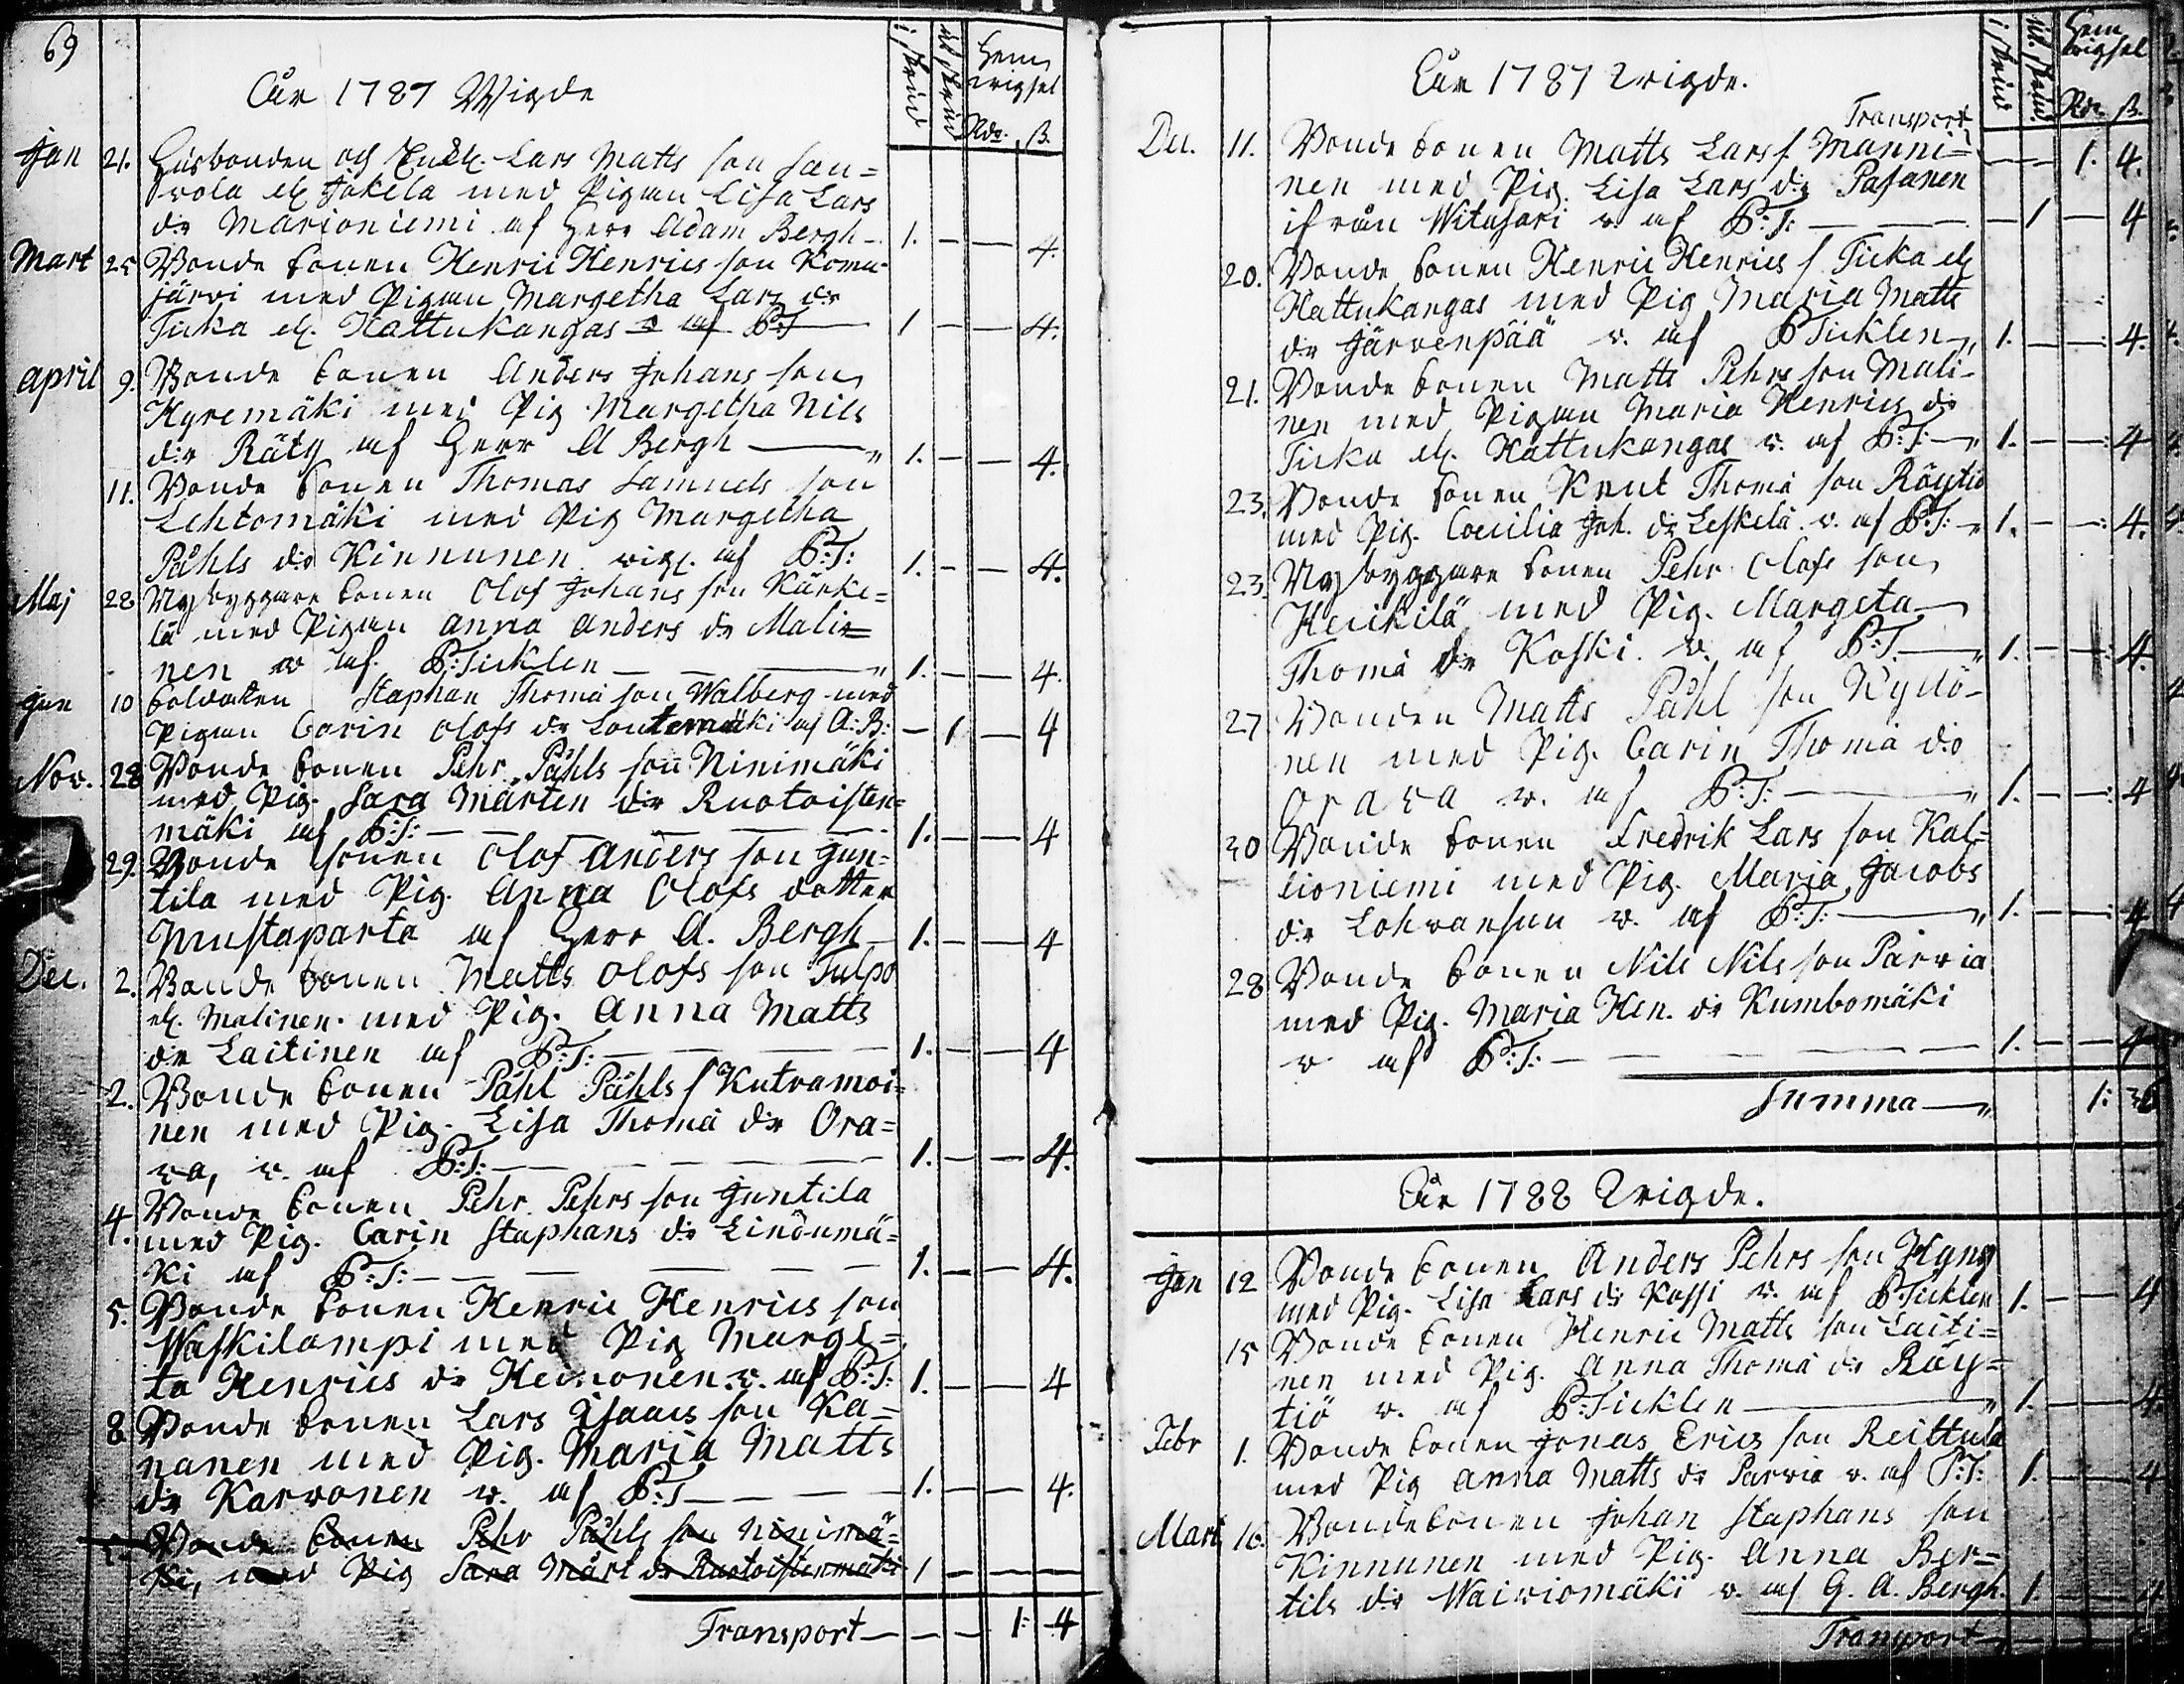 69
Åår 1787 Wigde
i sknd
ut sknd
Hem wigsel
Rdr. ß.
Jan 21. Husbonden och Enkl. Lars Matts son Sau=
vola el Jokela med Pigan Lisa Lars
dr Marioniemi af Herr Adam Bergh 1. — — 4.
Mart 25 Bonde Sonen Henric Henrics son Komu-
järvi med Pigan Margetha Lars dr
Ticka el. Hattukangas v af P:T 1 — — 4.
April 9. Bonde Sonen Anders Johans son
Hyremäki med Pig Margetha Nils
dr Räty af Herr A Bergh 1. — — 4.
11. Bonde Sonen Thomas Samuels son
Lehtomäki med Pig Margetha
Påhls dr Kinnunen vigl. af P:T: 1. — — 4.
Maj 28 Nybyggare Sonen Olof Johans son Kärke=
lä med Pigan Anna Anders dr Mali=
nen w af P:Ticklen 1. — — 4.
Jun 10 Soldaten Staphan Thoma son Walberg med
Pigan Carin Olofs dr Lontemäki af A:B: — 1 — 4
Nov. 28 Bonde Sonen Pehr Påhls son Ninimäki
med Pig. Sara Mårten dr Ruotoisten=
mäki af P:T: 1. — — 4
29. Bonde sonen Olof Anders son Jun=
tila med Pig. Anna Olofs dotter
Mustaparta af Herr A. Bergh 1. — — 4
Dec. 2. Bonde Sonen Matts Olofs son Tulpo
el. Malinen med Pig. Anna Matts
dr Laitinen af P:T: 1. — — 4
2. Bonde Sonen Påhl Påhls s Kutvamoi=
nen med Pig. Lisa Thoma dr Ora=
va, v. af P:T: 1. — — 4.
4. Bonde Sonen Pehr Pehrs son Juntila
med Pig. Carin Staphans dr Lindumä=
ki af P:T: 1. — — 4.
5. Bonde Sonen Henric Henrics son
Waskilampi med Pig Marge=
ta Henrics dr Heimonen v. af P:T: 1. — — 4
8 Bonde Sonen Lars Isaacs son Ka=
nanen med Pig. Maria Matts
dr Karvonen v. af P:T 1. — — 4.
Bonde Sonen Pehr Påhls son Ninimä=
ki, med Pig Sara Mårt dr Ruotoistenmäki 1 — —
Transport — — — 1: 4
Åår 1787 Wigde.
i sknd
ut sknd
Hem wigsel
Rdr. ß.
Transport — 1. 4.
Dec. 11. Bonde Sonen Matts Lars s. Manni=
nen med Pig. Lisa Lars dr Pasanen
ifrån Witasari v. af P:T: — 1 — 4
20. Bonde Sonen Henric Henrics s Ticka el
Hattukangas med Pig Maria Matts
dr Järvenpää v. af P Ticklen 1. — — 4.
21. Bonde Sonen Matts Pehrs son Mali-
nen med Pigan Maria Henrics dr
Ticka el. Hattukangas v. af P:T: 1. — — 4
23. Bonde Sonen Knut Thoma son Röytiö
med Pig. Cœcilia Joh. dr Leskelä v. af P:T: 1. — — 4.
23. Nybyggare Sonen Pehr Olofs son
Heikilä med Pig. Margeta
Thoma dr Koski v. af P:T. 1. — — 4.
27 Bonden Matts Påhl son Kydö-
nen med Pig. Carin Thoma dr
Orava v. af P:T: 1. — — 4
30 Bonde Sonen Fredrik Lars son Kal=
lioniemi med Pig. Maria Jacobs
dr Lohvansuu v. af P:T: 1. — — 4
28 Bonde Sonen Nils Nils son Parvia
med Pig. Maria Hen. dr Kumbomäki
v af P:T: 1. — — 4
Summa 1: 36
Åår 1788 Wigde.
Jan 12 Bonde Sonen Anders Pehrs son Hyny
med Pig. Lisa Lars dr Kossi v. af P Ticklen 1. — — 4
15 Bonde Sonen Henric Matts son Laiti=
nen med Pig. Anna Thoma dr Röy=
tiö v. af P:Ticklen 1. — — 4
Febr 1. Bonde Sonen Jonas Erics son Reittula
med Pig Anna Matts dr Parvia v. af P:T: 1. — — 4
Mart 16. Bondesonen Johan Staphans son
Kinnunen med Pig. Anna Ber=
tils dr Waiviomäki v. af G. A. Bergh 1. — — 4
Transport